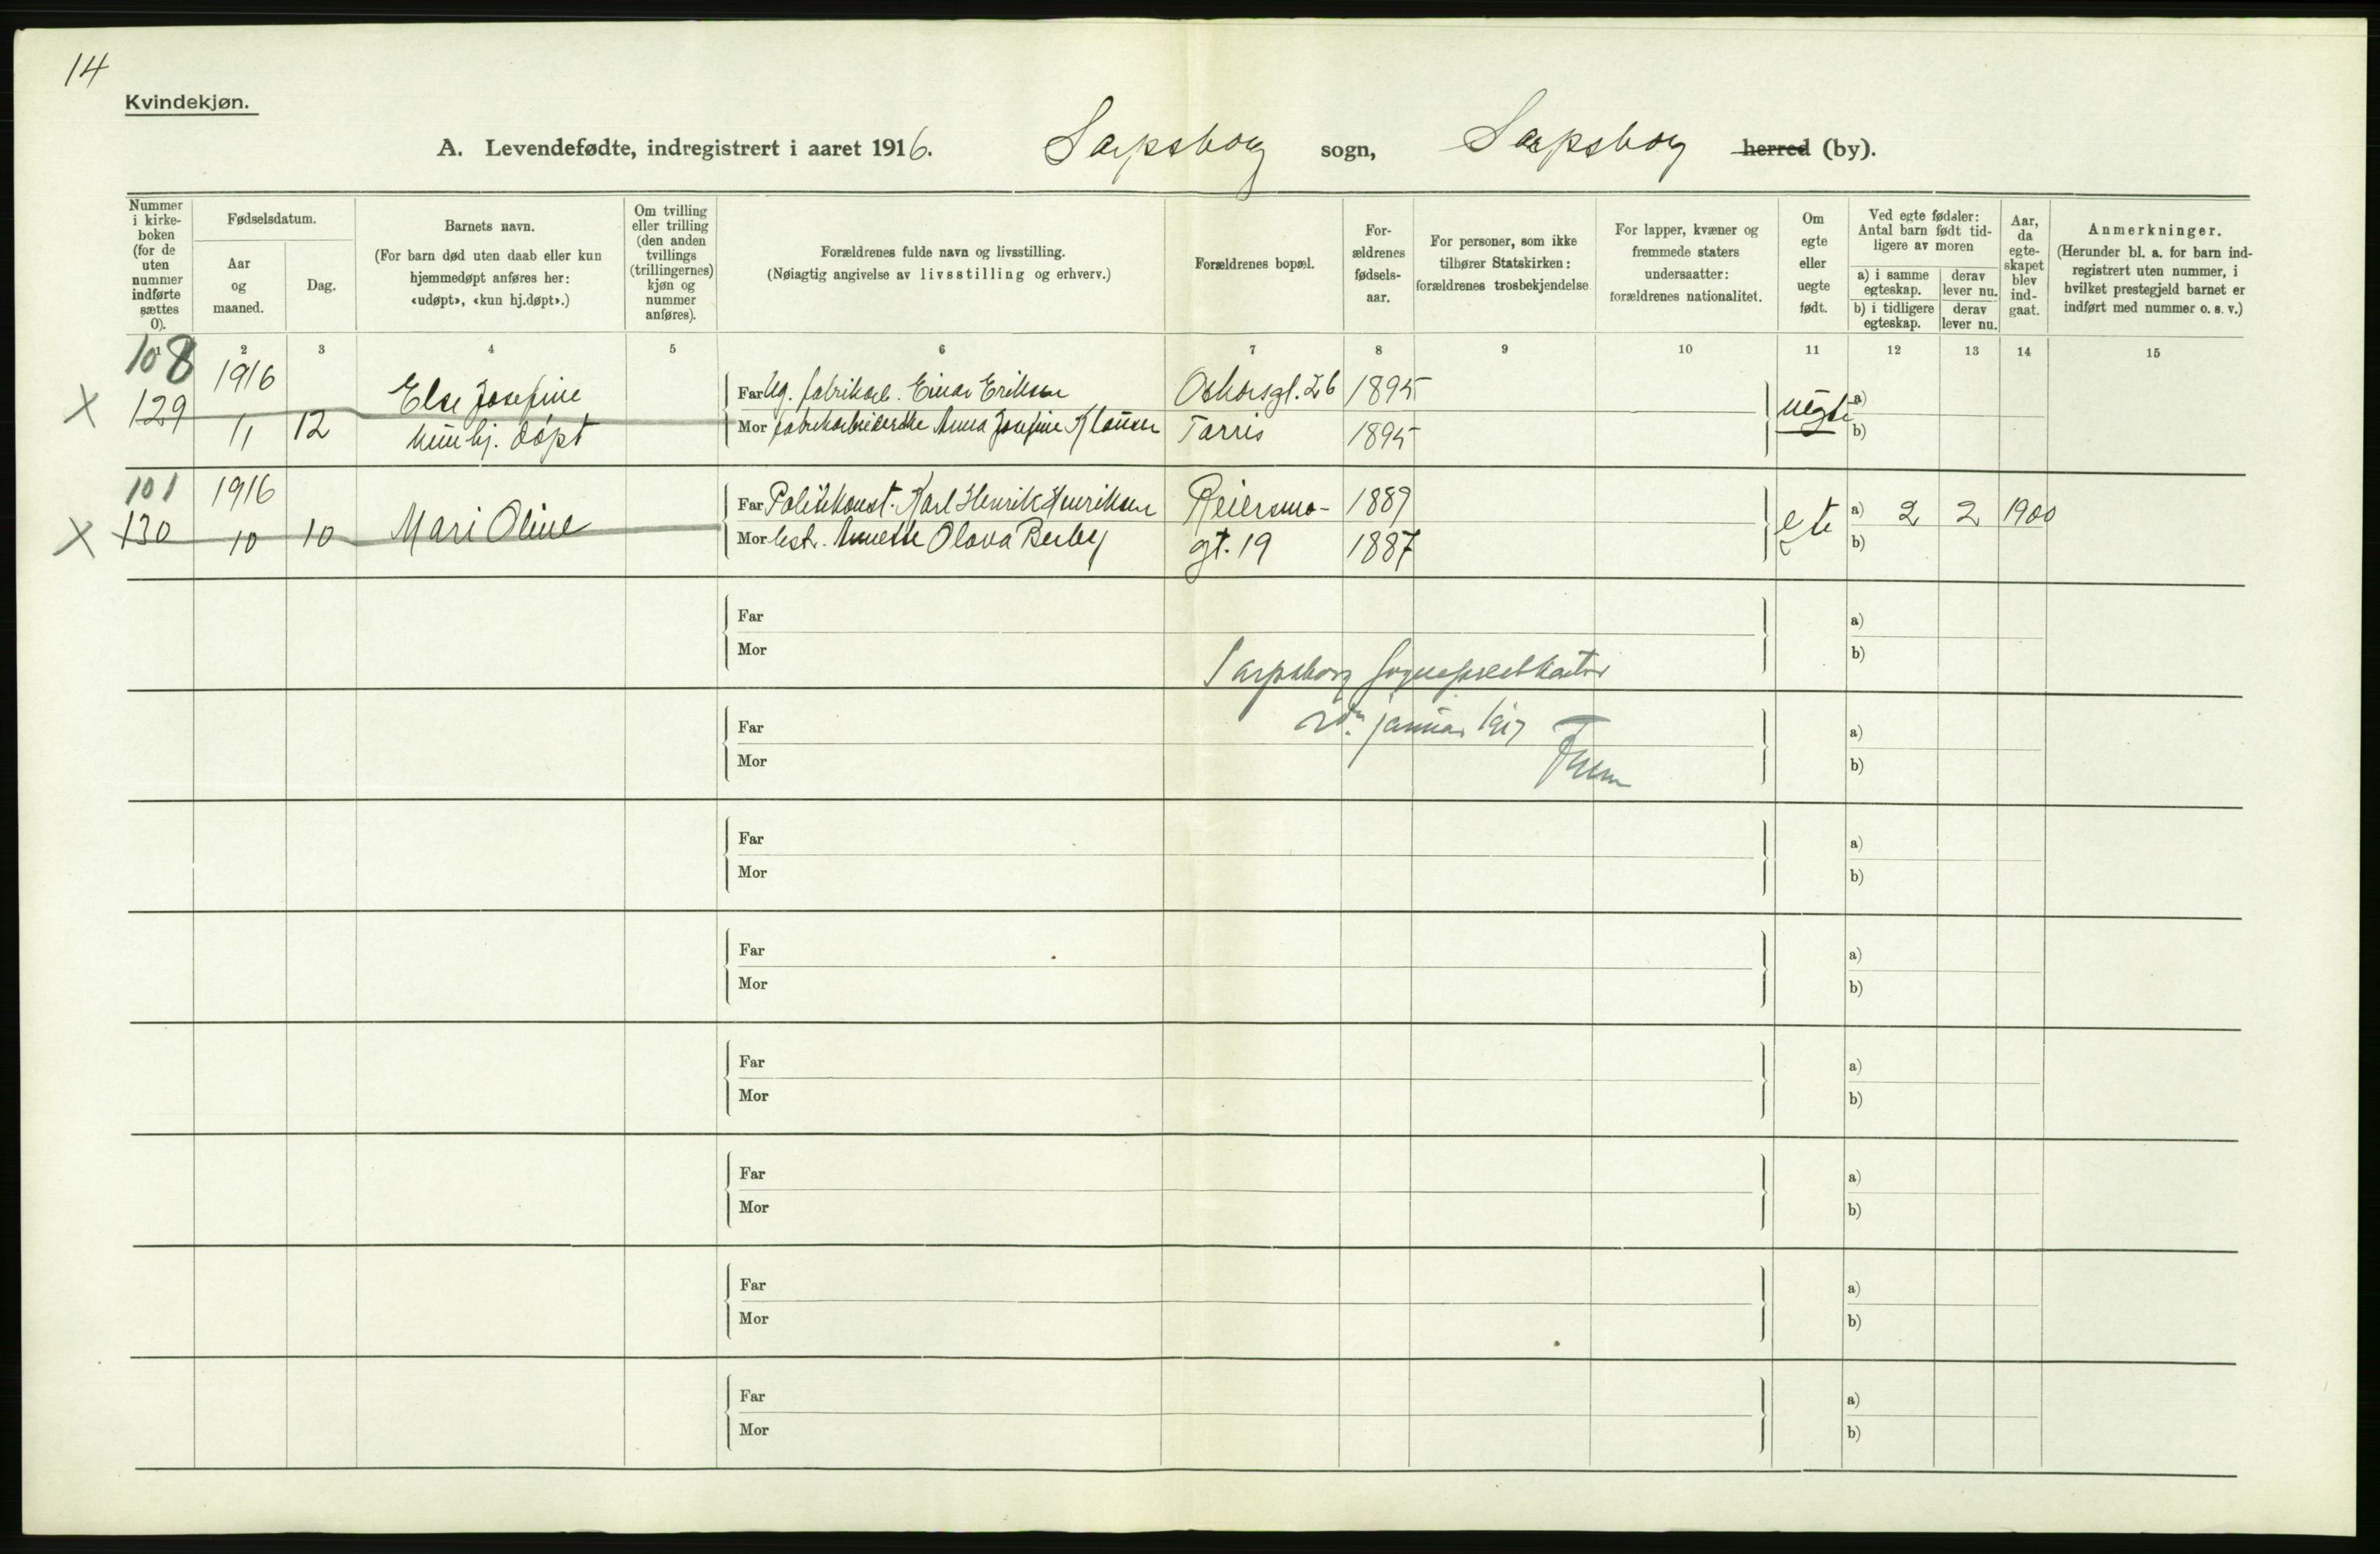 14
Kvindekjøn.
A. Levendefødte, indregistrert i aaret 1916. Sarpsborg sogn, Sarpsborg herred (by).
Nummer i kirkeboken (for de uten nummer indførte sættes 0).
Fødselsdatum.
Aar og maaned.
Dag.
Barnets navn.
(For barn død uten daab eller kun hjemmedøpt anføres her: «udøpt», «kun hj.døpt».)
Om tvilling eller trilling (den anden tvillings (trillingernes) kjøn og nummer anføres).
Forældrenes fulde navn og livsstilling.
(Nøiagtig angivelse av livsstilling og erhverv.)
Forældrenes bopæl.
For-ældrenes fødsels-aar.
For personer, som ikke tilhører Statskirken: forældrenes trosbekjendelse
For lapper, kvæner og fremmede staters undersaatter: forældrenes nationalitet.
Om egte eller uegte født.
Ved egte fødsler: Antal barn født tid-ligere av moren
a) i samme egteskap.
derav lever nu.
b) i tidligere egteskap.
derav lever nu.
Aar, da egte-skapet blev ind-gaat.
Anmerkninger.
(Herunder bl. a. for barn ind-registrert uten nummer, i hvilket prestegjeld barnet er indført med nummer o. s. v.)
1 2 3 4 5 6 7 8 9 10 11 12 13 14 15
108 1916
X 129 11 12 Else Josefine Far Ug. fabrikarb. Einar Eriksen Oskarsgt. 26 1895 uegte a)
kun hj. døpt Mor fabrikarbeiderske Anna Josefine Klausen Tarris 1895 b)
101 1916
X 130 10 10 Mari Oline Far Politikonst. Karl Henrik Henriksen Reiersmo- 1889 a) 2 2 1900
Mor hstr. Annette Olava Berby gt. 19 1887 b)
Far a)
Mor b)
Sarpsborg sogneprestkontor
januar 1917
Far a)
Mor b)
Far a)
Mor b)
Far a)
Mor b)
Far a)
Mor b)
Far a)
Mor b)
Far a)
Mor b)
Far a)
Mor b)